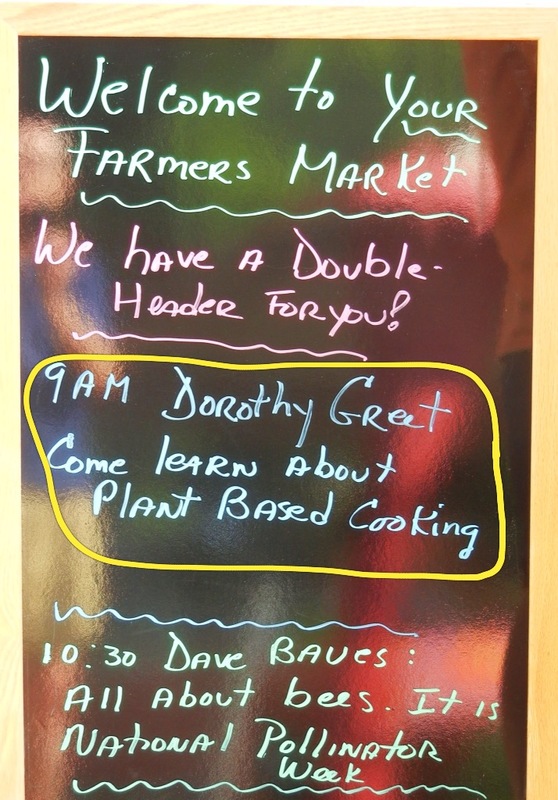 Welcome to Your
Farmers Market
We have a Double-
Header For you!
9AM Dorothy Greet
Come learn about
Plant Based Cooking
10:30 Dave Baues:
All About bees. It is
National Pollinator
Week